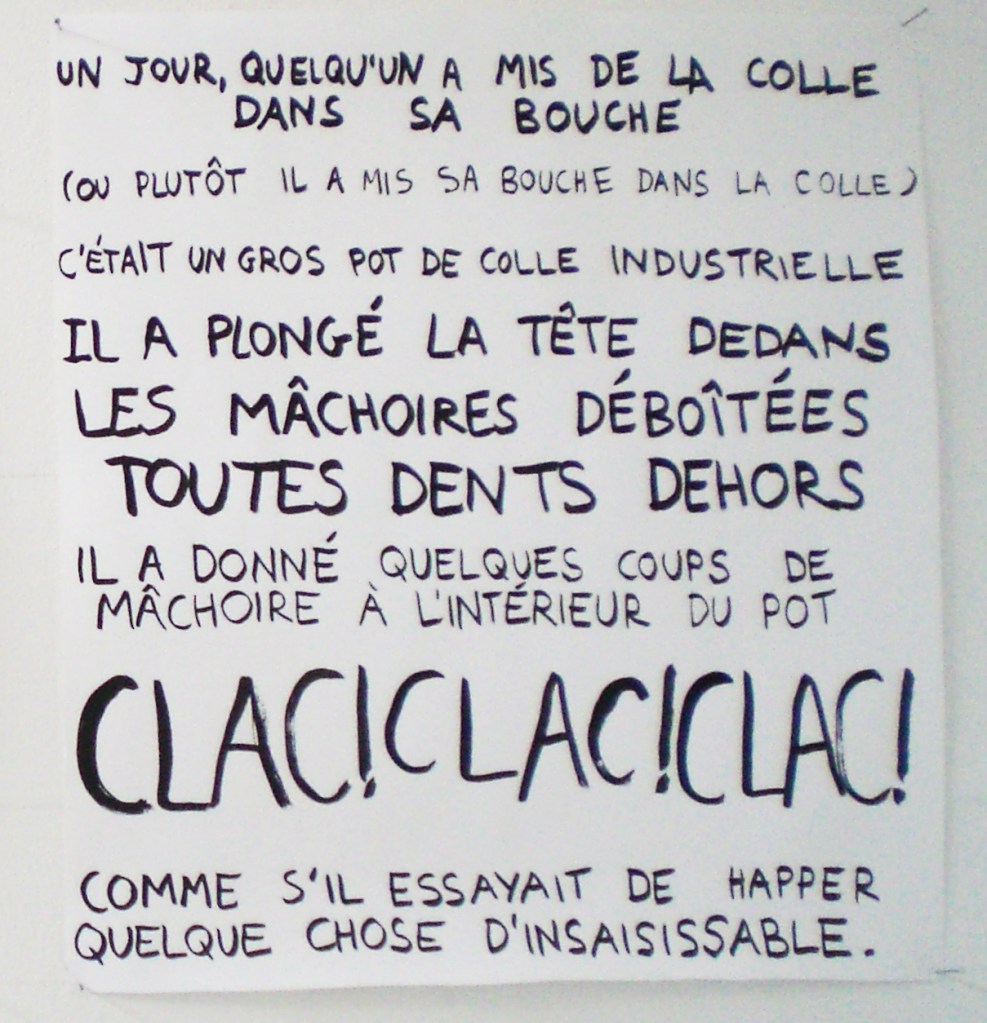 UN JOUR, QUELQU'UN A MIS DE LA COLLE
DANS SA BOUCHE
(OU PLUTÔT IL A MIS SA BOUCHE DANS LA COLLE)
C'ÉTAIT UN GROS POT DE COLLE INDUSTRIELLE
IL A PLONGÉ LA TÊTE DEDANS
LES MÂCHOIRES DÉBOÎTÉES
TOUTES DENTS DEHORS
IL A DONNÉ QUELQUES COUPS DE
MÂCHOIRE À L'INTÉRIEUR DU POT
CLAC! CLAC! CLAC!
COMME S'IL ESSAYAIT DE HAPPER
QUELQUE CHOSE D'INSAISISSABLE.